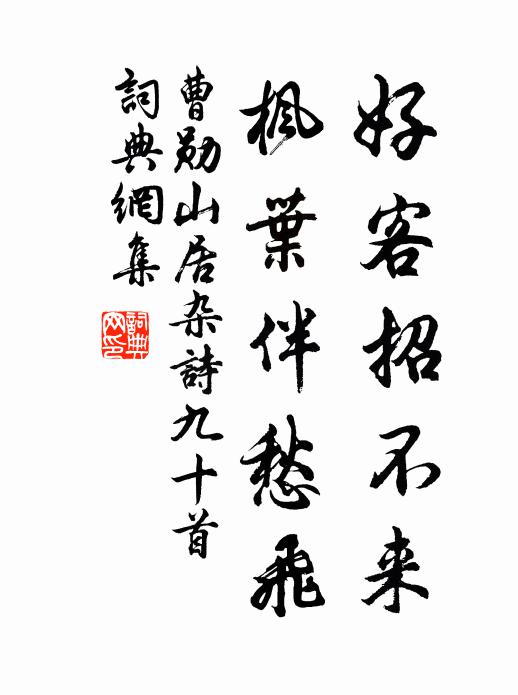 好客招不来
枫葉伴愁飛
曹勋山居杂詩九十首
詞典網集
詞典網印